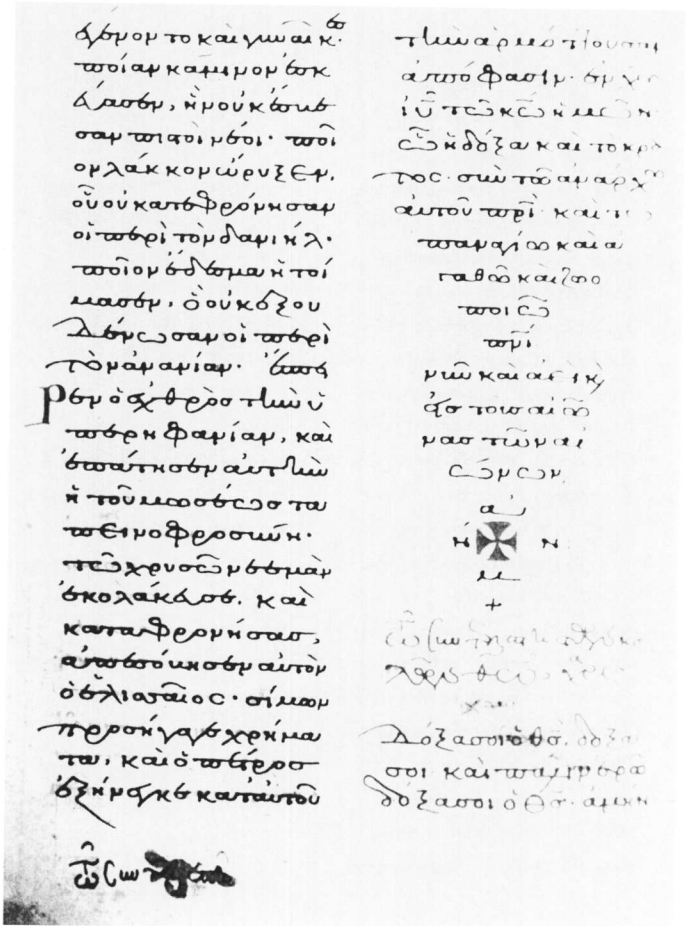 γένοντο καὶ γυναῖκ(ες)·
ποίαν κάμινον ἐσκ
εύασεν, ἣν οὐκ ἔσβε
σαν πιστοὶ νέοι· ποῖ
ον λάκκον ὤρυξεν,
οὗ οὐ κατεφρόνησαν
οἱ περὶ τὸν δανιήλ·
ποῖον ἔδεσμα ἡτοί
μασεν, ὃ οὐκ ἐξου
δένωσαν οἱ περὶ
τὸν ἀνανίαν·
ρεν ὁ ἐχθρὸς τὴν ὑ
περηφανίαν, καὶ
ἐπάτησεν αὐτὴν
ἡ τοῦ μωσέως τα
πεινοφροσύνη·
τῶ χρυσῶ νεεμὰν
ἐκολάκευσε, καὶ
καταφρονήσας,
αὐτὸν
ὁ ἐλισσαῖος· σίμων
προσήγαγε χρήμα
τα, καὶ ὁ πέτρος
ἐξήνεγκε κατ' αὐτοῦ
τὴν ἁρμόττουσαν
ἀπόφασιν· ἐν χω
ιυ τῶ κω ἡμῶν
ὧ ἡ δόξα καὶ τὸ κρά
τος· σὺν τῶ ἀνάρχω
αὐτοῦ πρι· καὶ τω
παναγίω καὶ ἀ
γαθῶ καὶ ζωο
ποιῶ
πνι
νῦν καὶ ἀεὶ κ(αὶ)
εἰς τοὺς αἰῶ
νας τῶν αἰ
ώνων
ἀ
μ
ή ν
+
Δόξα σοι ὁ θς, δόξα
σοι· καὶ πάλιν ἐρῶ
δόξα σοι ὁ θς· ἀμήν